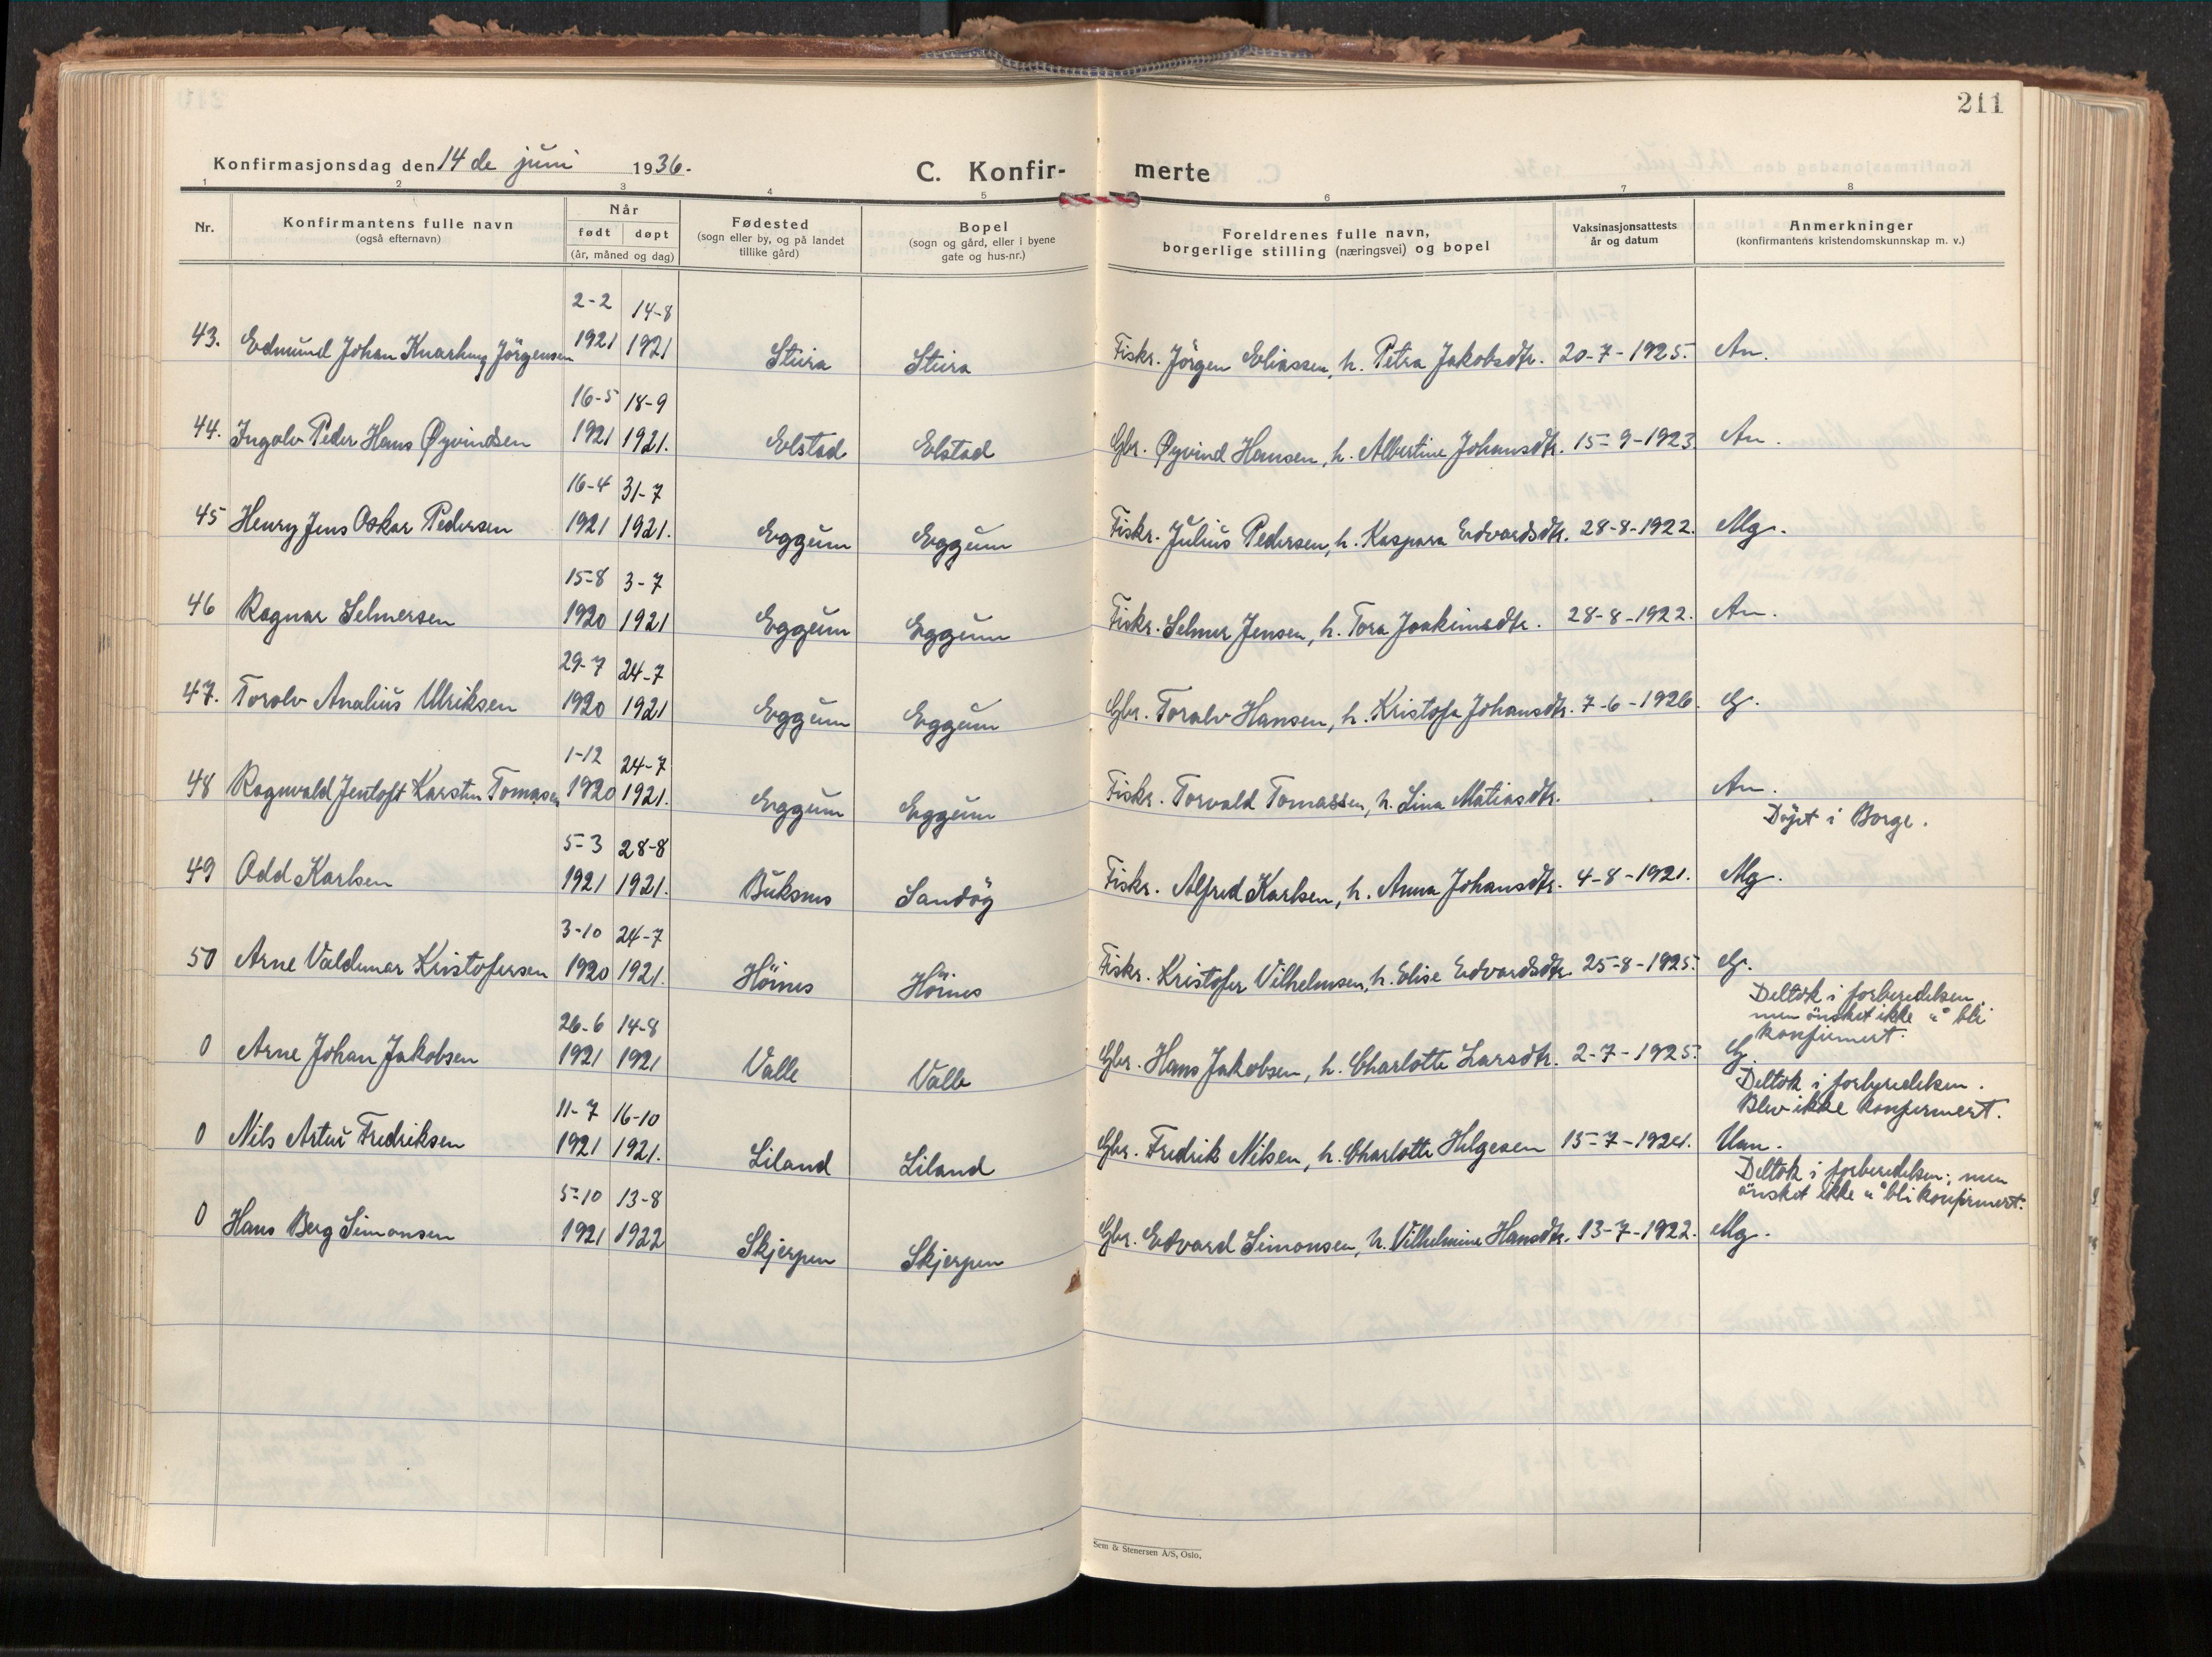 211
Konfirmasjonsdag den 14 de juni 1936.
C. Konfir- merte
1 2 3 4 5 6 7 8
Nr. Konfirmantens fulle navn (også efternavn) Når født døpt (år, måned og dag) Fødested (sogn eller by, og på landet tillike gård) Bopel (sogn og gård, eller i byene gate og hus-nr.) Foreldrenes fulle navn, borgerlige stilling (næringsvei) og bopel Vaksinasjonsattests år og datum Anmerkninger (konfirmantens kristendomskunnskap m. v.)
2-2 14-8
43. Edmund Johan Jörgensen 1921 1921 Stura Stura Fiskr. Jörgen Eliassen, h. Petra Jakobsdtr. 20-7-1925. An.
16-5 18-9
44. Ingolv Peder Hans Øyvindsen 1921 1921. Elstad Elstad Gbr. Øyvind Hansen, h. Albertine Johansdtr. 15-9-1923. An.
16-4 31-7
45 Henry Jens Oskar Pedersen 1921 1921. Eggum Eggum Fiskr. Julius Pedersen, h. Kaspara Edvardsdtr. 28-8-1922. Mg.
15-8 3-7
46 Ragnar Selmersen 1920 1921 Eggum Eggum Fiskr. Selmer Jensen, h. Tora Joakimsdtr. 28-8-1922. An.
29-7 24-7
47. Torolv Analius Ulriksen 1920 1921 Eggum Eggum Gbr. Toralv Hansen, h. Kristofa Johansdtr. 7-6-1926. G.
1-12 24-7
48 Ragnvald Jentoft Karsten Tomasen 1920 1921. Eggum Eggum Fiskr. Torvald Tomassen, h. Lina Matiasdtr. An.
Döpt i Borge.
5-3 28-8
49 Odd Karlsen 1921 1921. Buksnes Sandög Fiskr. Alfred Karlsen, h. Anna Johansdtr. 4-8-1921. Mg.
3-10 24-7
50 Arne Valdemar Kristofersen 1920 1921. Hörnes Hörnes Fiskr. Kristofer Vilhelmsen, h. Elise Edvardsdtr. 25-8-1925. G.
Deltok i forberedelsen.
men önsket ikke å bli
konfirmert.
26-6 14-8
0 Arne Johan Jakobsen 1921 1921 Valle Valle Gbr. Hans Jakobsen, h. Charlotte Larsdtr. 2-7-1925. G.
Deltok i forberedelsen.
Blev ikke konfirmert.
11-7 16-10
0 Nils Artur Fredriksen 1921 1921. Liland Liland Gbr. Fredrik Nilsen, h. Charlotte Helgesen 15-7-1924. Uan.
Deltok i forberedelsen; men
önsket ikke å bli konfirmert.
5-10 13-8
0 Hans Berg Simonsen 1921 1922 Skjerpen Skjerpen Gbr. Edvard Simonsen, h. Vilhelmine Hansdtr. 13-7-1922. Mg.
Sem & Stenersen A/S, Oslo.